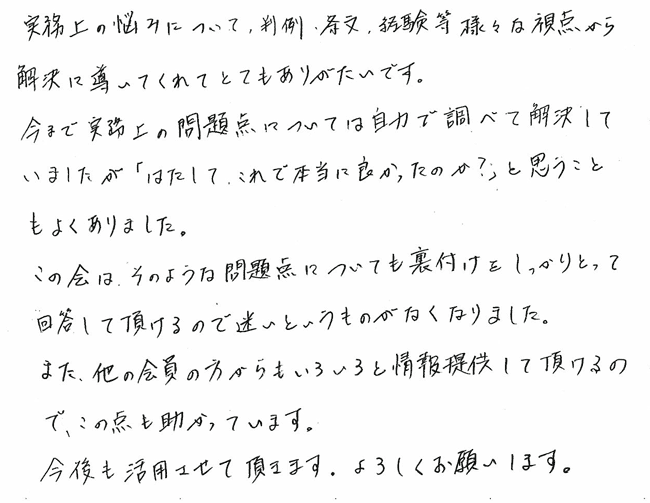 実務上の悩みについて、判例、条文、経験等様々な視点から
解決に導いてくれてとてもありがたいです。
今まで実務上の問題点については自力で調べて解決して
いましたが「はたして、これで本当に良かったのか？」と思うこと
もよくありました。
この会は、そのような問題点についても裏付けをしっかりとって
回答して頂けるので迷いというものがなくなりました。
また、他の会員の方からもいろいろと情報提供して頂けるの
で、この点も助かっています。
今後も活用させて頂きます。よろしくお願いします。